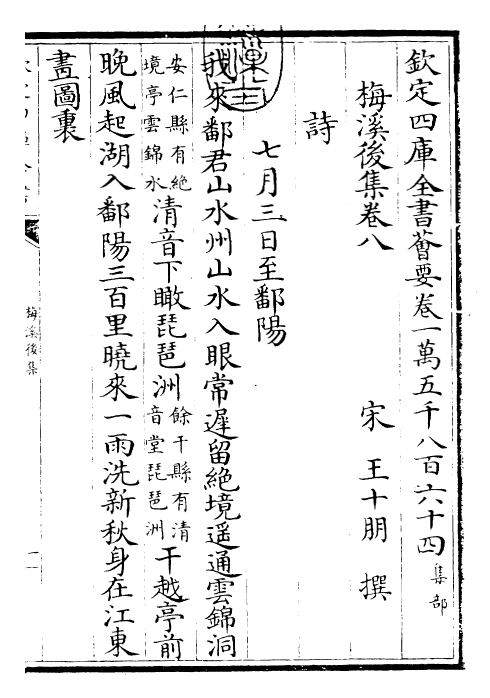 欽定四庫全書薈要卷一萬五千八百六十四 集部
梅溪後集卷八
宋 王十朋 撰
詩
七月三日至鄱陽
我來鄱君山水州山水入眼常遲留絶境遥通雲錦洞
安仁縣有絶
境亭雲錦水
清音下瞰琵琶洲
餘干縣有清
音堂琵琶洲
干越亭前
晚風起湖入鄱陽三百里曉來一雨洗新秋身在江東
畫圖裏
梅溪後集
一